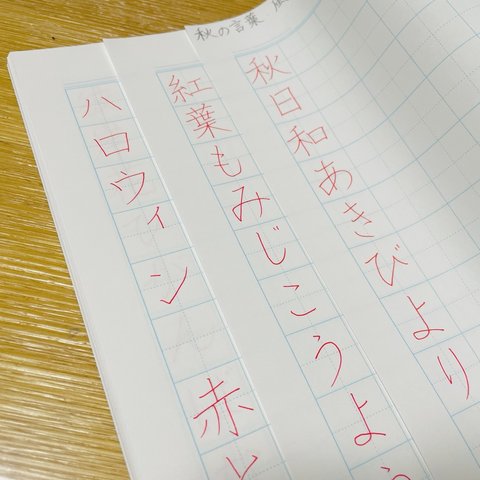 秋の言葉
秋日和あきびより
紅葉もみじこうよう
ハロウィン 赤と